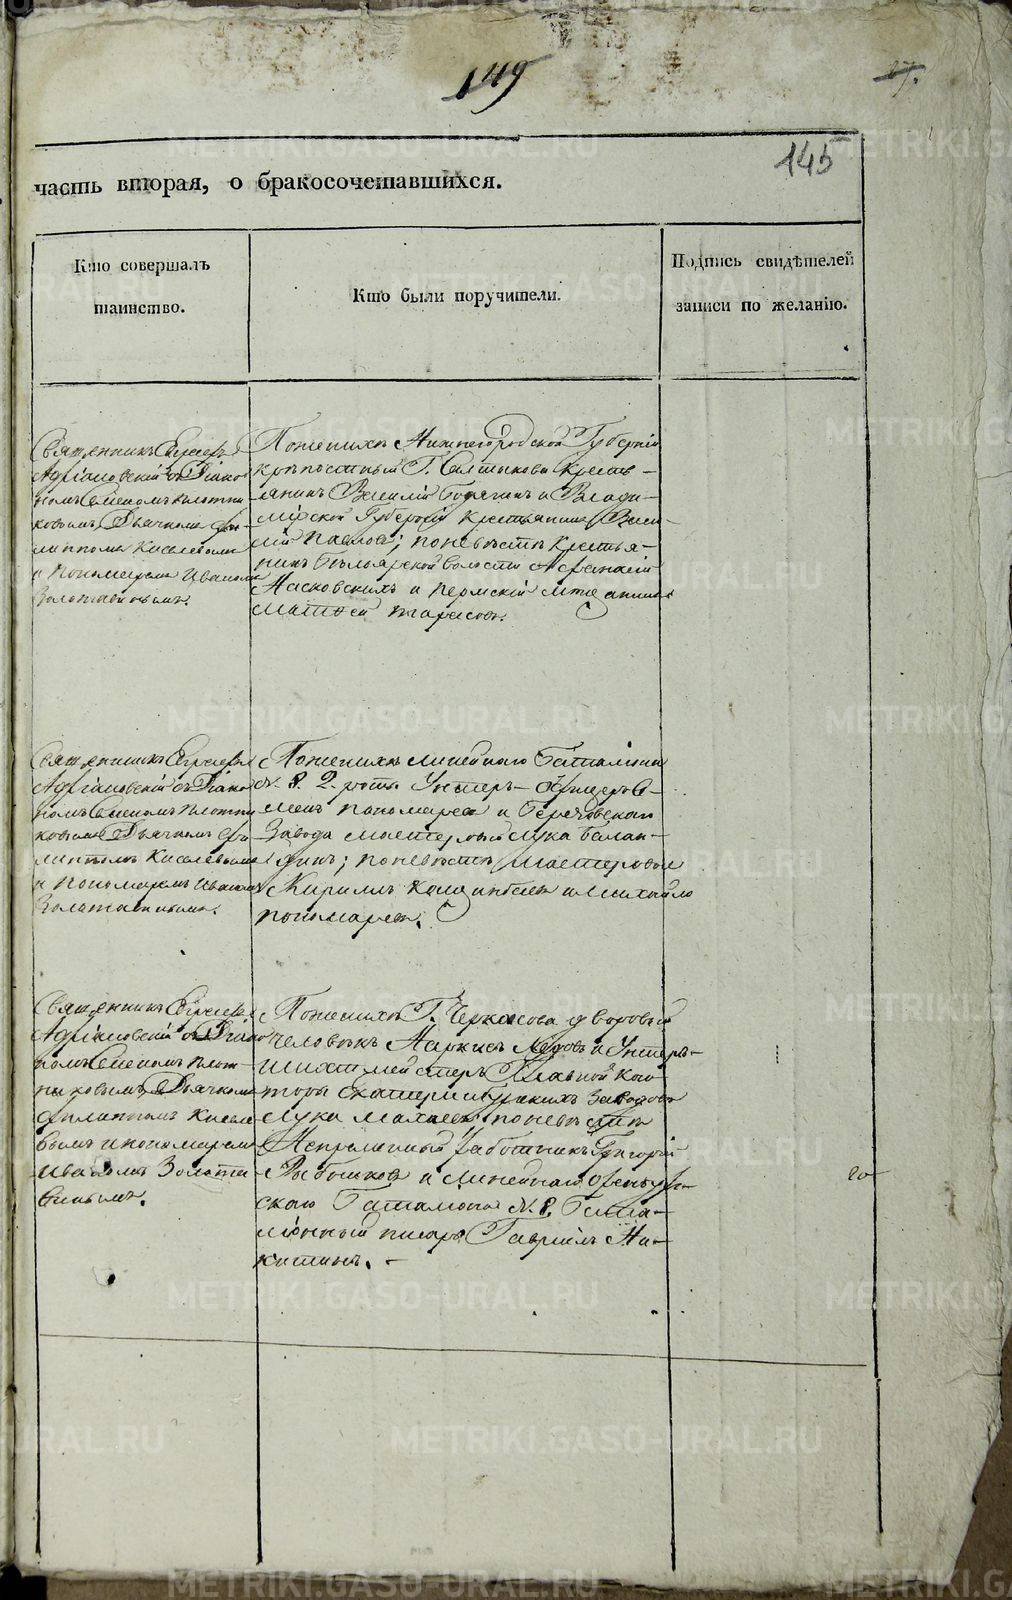 149
145
часть вторая, о бракосочетавшихся.
Кто совершалъ
таинство.
Кто были поручители.
Подпись свидѣтелей
записи по желанію.
Священникъ
Адріановскій съ Діако-
номъ Симеономъ Плотни-
ковымъ, Дьячкомъ Фи-
липпомъ Киселевымъ
и Пономаремъ Иваномъ
Золотавинымъ.
По женихѣ Нижнегородской Губерніи
крѣпостный Г. Салтыкова крестья-
янинъ Василій и Влади-
мірской Губерніи крестьянинъ Васи-
лій Павловъ; по невѣстѣ крестья-
нинъ волости Афанасій
и Пермскій мѣщанинъ
Матвей Тарасовъ.
Священникъ
Адріановскій съ Діако-
номъ Симеономъ Плотни-
ковымъ Дьячкомъ Фи-
липпомъ Киселевымъ
и Пономаремъ Иваномъ
Золотавинымъ.
По женихѣ Линейнаго Баталіона
№. 8. 2. роты Унтеръ-Офицеръ Се-
менъ Пономаревъ и Березовскаго
Завода мастеровый Лука Балан-
динъ; по невѣстѣ Мастеровые
Кириллъ и Михайло
Пономаревъ.
Священникъ
Адріановскій съ Діако-
номъ Симеономъ Плот-
никовымъ, Дьячкомъ
Филиппомъ Кисели-
вымъ и пономаремъ
Иваномъ Золота-
винымъ.
По женихѣ Г. Черкасова дворовый
человѣкъ Наркисъ и Унтеръ-
шихтмейстеръ Главной Кон-
торы Екатеринбургскихъ Заводовъ
Лука Малаевъ; по невѣстѣ
Непремѣнный работникъ Григорій
и Линейнаго Оренбург-
скаго Баталіона №. 8. Бата-
ліонный писарь Гавріилъ Ни-
китинъ. -